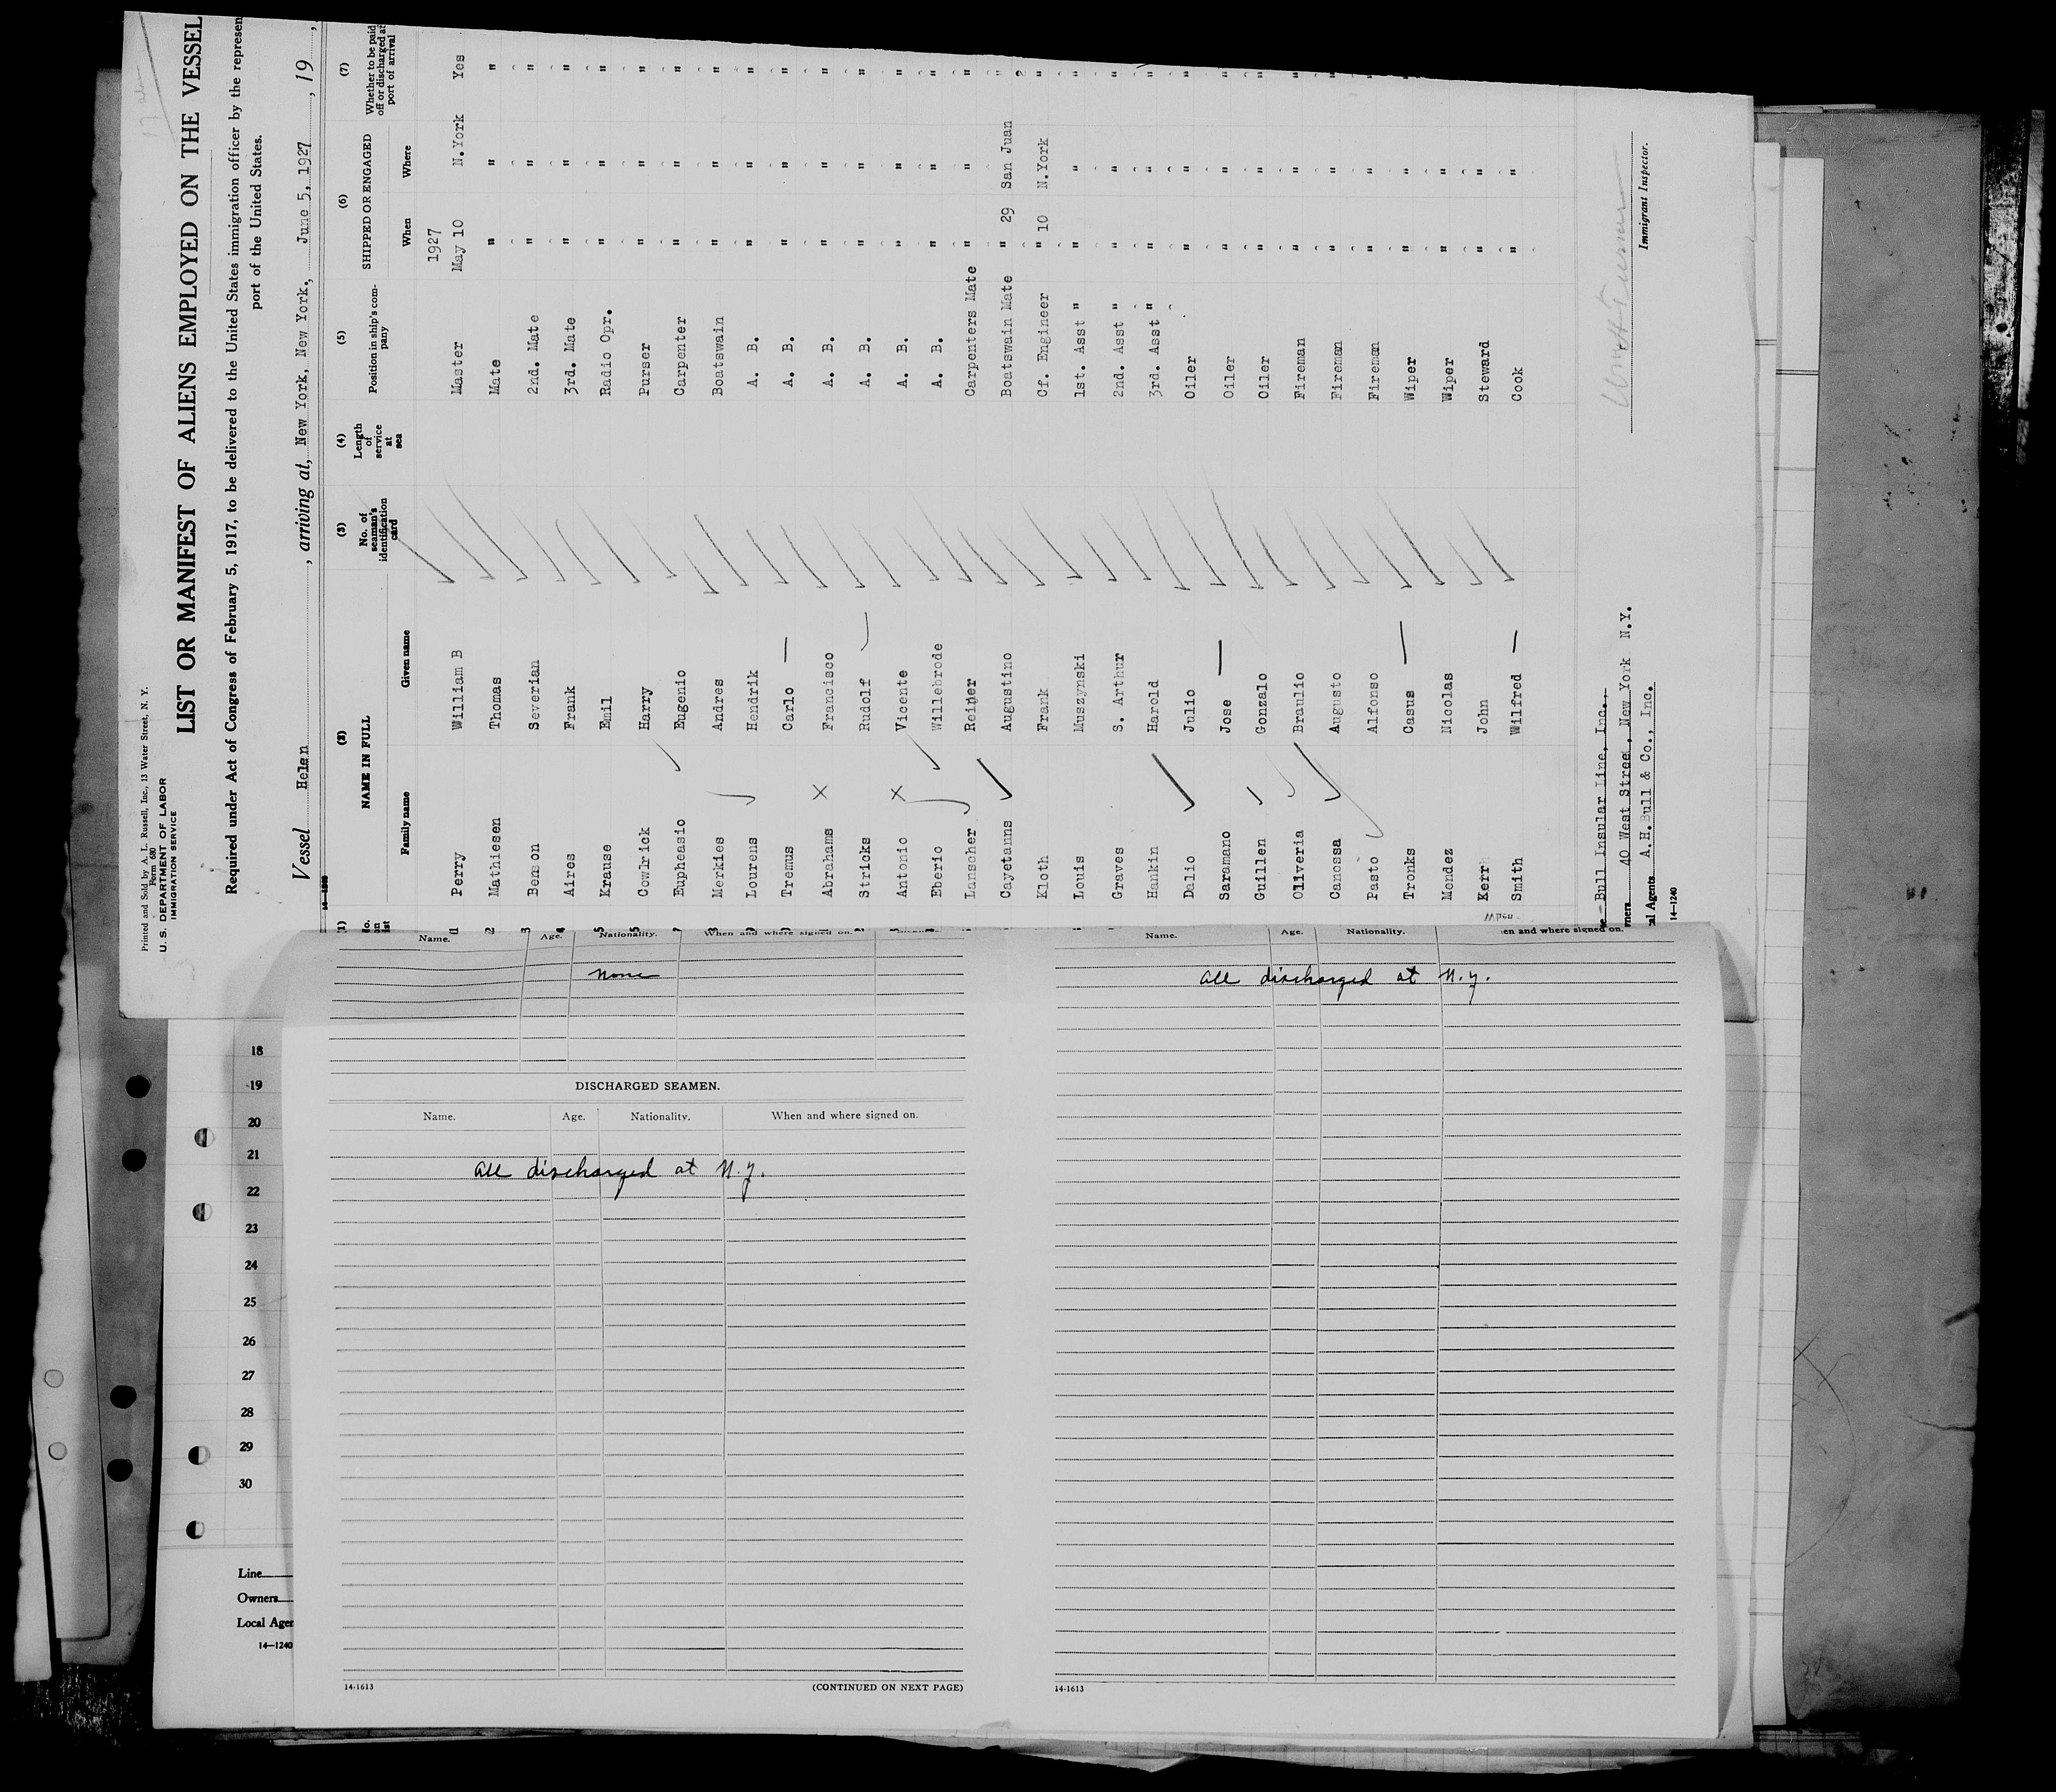 Printed and Sold by A. L. Russell, Inc., 13 Water Street, N. Y.
Form 680
U. S. DEPARTMENT OF LABOR
IMMIGRATION SERVICE
LIST OR MANIFEST OF ALIENS EMPLOYED ON THE VESSEL
Required under Act of Congress of February 5, 1917, to be delivered to the United States immigration officer by the represen
port of the United States.
Vessel Helen, arriving at, New York, New York. June 5, 1927, 19
(2) (3) (4) (5) (6) (7)
NAME IN FULL
Family name Given name
No. of seaman's identification card
Length of service at sea
Position in ship's company
SHIPPED OR ENGAGED
When Where
Whether to be paid off or discharged at port of arrival
1927
1 Perry William B Master May 10 N.York Yes
2 Mathiesen Thomas Mate " " "
3 Benson Severian 2nd. Mate " " "
4 Aires Frank 3rd. Mate " " "
5 Krause Emil Radio Opr. " " "
Cowlrick Harry Purser " " "
7 Eupheasio Eugenio Carpenter " " "
Merkies Andres Boatswain " " "
Lourens Hendrik A. B. " " "
Tremus Carlo A. B. " " "
Abrahams Francisco A. B. " " "
Stricks Rudolf A. B. " " "
Antonio Vicente A. B. " " "
Eberio Willebrode A. B. " " "
Lanscher Reiner Carpenters Mate " " "
Cayetanns Augustino Boatswain Mate " 29 San Juan "
Kloth Frank Cf. Engineer " 10 N.York "
Louis Muszynski 1st. Asst " " " "
Graves S. Arthur 2nd. Asst " " " "
Hankin Harold 3rd. Asst " " " "
Dalio Julio Oiler " " "
Saramano Jose Oiler " " "
Guillen Gonzalo Oiler " " "
Oliveria Braulio Fireman " " "
Canossa Augusto Fireman " " "
Pasto Alfonso Fireman " " "
Tronks Casus Wiper " " "
Mendez Nicolas Wiper " " "
Kerr John Steward " " "
Smith Wilfred Cook " " "
Bull Insular Line, Inc.
40 West Street, New York N.Y.
al Agents A.H.Bull & Co., Inc.
14—1240
Immigrant Inspector.
Name. Age. Nationality. When and where signed on.
None
DISCHARGED SEAMEN.
Name. Age. Nationality. When and where signed on.
All discharged at N.Y.
14-1613
(CONTINUED ON NEXT PAGE)
Name. Age. Nationality. en and where signed on.
All discharged at N.Y.
14-1613
18
19
20
21
22
23
24
25
26
27
28
29
30
Line
Owners
Local Agen
14—1240